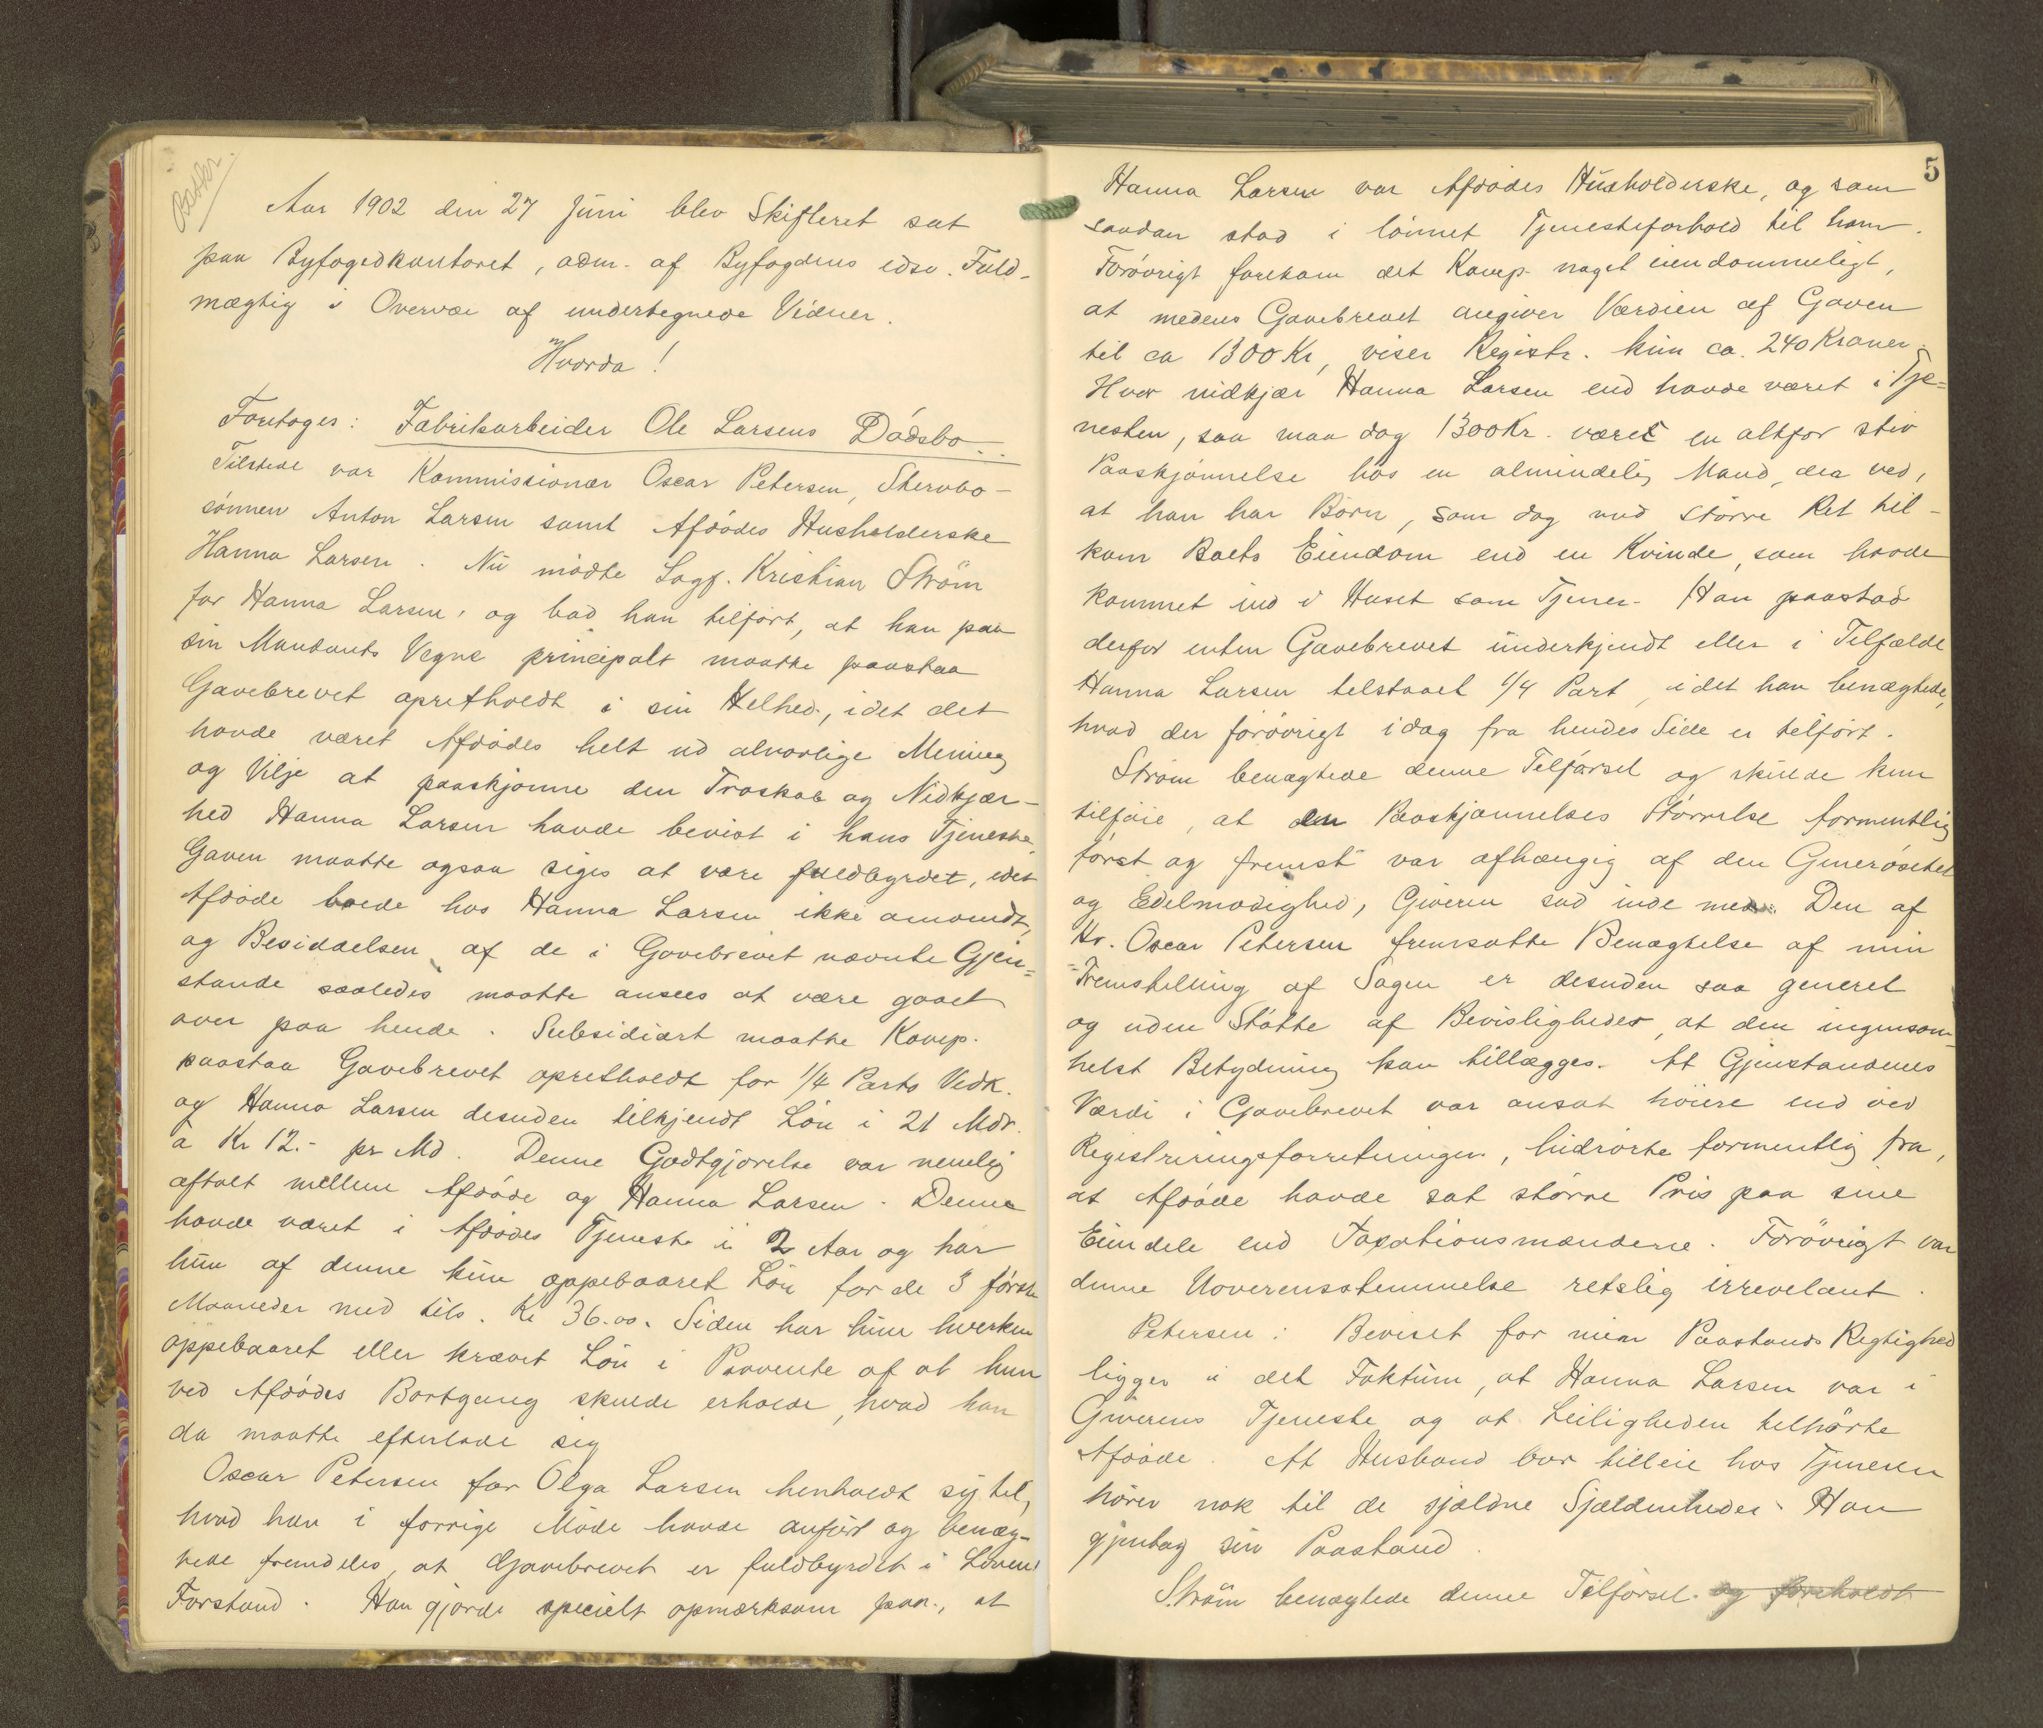 Aar 1902 den 27 Juni blev Skifteret sat
paa Byfogedkontoret, adm. af Byfogdens edsv. Fuld-
mægtig i Overvær af undertegnede Vidner.
Hvorda!
Foretoges: Fabrikarbeider Ole Larsens Dødsbo.
Tilstede var Kommissionær Oscar Petersen, Stervbo-
sønnen Anton Larsen samt Afdødes Husholderske
Hanna Larsen. Nu mødte Sagf. Kristian Strøm
for Hanna Larsen, og bad han tilført, at han paa
sin Mandants Vegne principalt maatte paastaa
Gavebrevet opretholdt i sin Helhed, idet det
havde været Afdødes helt ud alvorlige Mening
og Vilje at paaskjønne den Troskab og Nidkjær-
hed Hanna Larsen havde bevist i hans Tjeneste.
Gaven maatte ogsaa siges at være fuldbyrdet, idet
Afdøde boede hos Hanna Larsen ikke omvendt,
og Besiddelsen af de i Gavebrevet nævnte Gjen=
stande saaledes maatte ansees at være gaaet
over paa hende. Subsidiært maatte Komp.
paastaa Gavebrevet opretholdt for 1/4 Parts Vedk.
og Hanna Larsen desuden tilkjendt Løn i 21 Mdr.
a Kr 12.- pr Md. Denne Godtgjørelse var nemlig
aftalt mellem Afdøde og Hanna Larsen. Denne
havde været i Afdødes Tjeneste i 2 Aar og har
hun af denne kun oppebaaret Løn for de 3 første
Maaneder med tils. Kr 36.00. Siden har hun hverken
oppebaaret eller krævet Løn i Paavente af at hun
ved Afdødes Bortgang skulde erholde, hvad han
da maatte efterlade sig
Oscar Petersen for Olga Larsen henholdt sig til,
hvad han i forrige Møde havde anført og benæg-
tede fremdeles, at Gavebrevet er fuldbyrdet i Lovens
Forstand. Han gjorde specielt opmærksom paa, at
5
Hanna Larsen var Afdødes Husholderske, og som
saadan stod i lønnet Tjenesteforhold til ham.
Forøvrigt forekom det Komp. noget eiendommeligt,
at medens Gavebrevet angiver Værdien af Gaven
til ca 1300 Kr, viser Registr. kun ca. 240 Kroner.
Hvor nidkjær Hanna Larsen end havde været i Tje=
nesten, saa maa dog 1300 Kr. være en altfor stiv
Paaskjønnelse hos en almindelig Mand, der ved,
at han har Børn, som dog med større Ret til-
kom Boets Eiendom end en Kvinde, som havde
kommet ind i Huset som Tjener. Han paastod
derfor enten Gavebrevet underkjendt eller i Tilfælde
Hanna Larsen tilstaaet 1/4 Part, idet han benægtede,
hvad der forøvrigt idag fra hendes Side er tilført.
Strøm benægtede denne Tilførsel og skulde kun
tilføie, at den Paaskjønnelses Størrelse formentlig
først og fremst var afhængig af den Generøsitet
og Edelmodighed, Giveren sad inde med. Den af
Hr. Oscar Petersen fremsatte Benægtelse af min
=Fremstilling af Sagen er desuden saa generel
og uden Støtte af Bevisligheder, at den ingensom-
helst Betydning kan tillægges. At Gjenstandenes
Værdi i Gavebrevet var ansat høiere end ved
Registreringsforretningen, hidrørte formentlig fra,
at Afdøde havde sat større Pris paa sine
Eiendele end Taxationsmændene. Forøvrigt var
denne Uoverensstemmelse retslig irrevelant.
Petersen: Beviset for min Paastands Rigtighed
ligger i det Faktum, at Hanna Larsen var i
Giverens Tjeneste og at Leiligheden tilhørte
Afdøde. At Husbond bor tilleie hos Tjeneren
hører nok til de sjældne Sjældenheder. Han
gjentog sin Paastand.
Strøm benægtede denne Tilførsel. og foreholdt